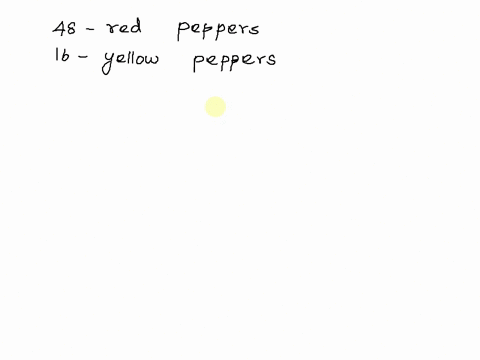 48 - red peppers
16 - yellow peppers